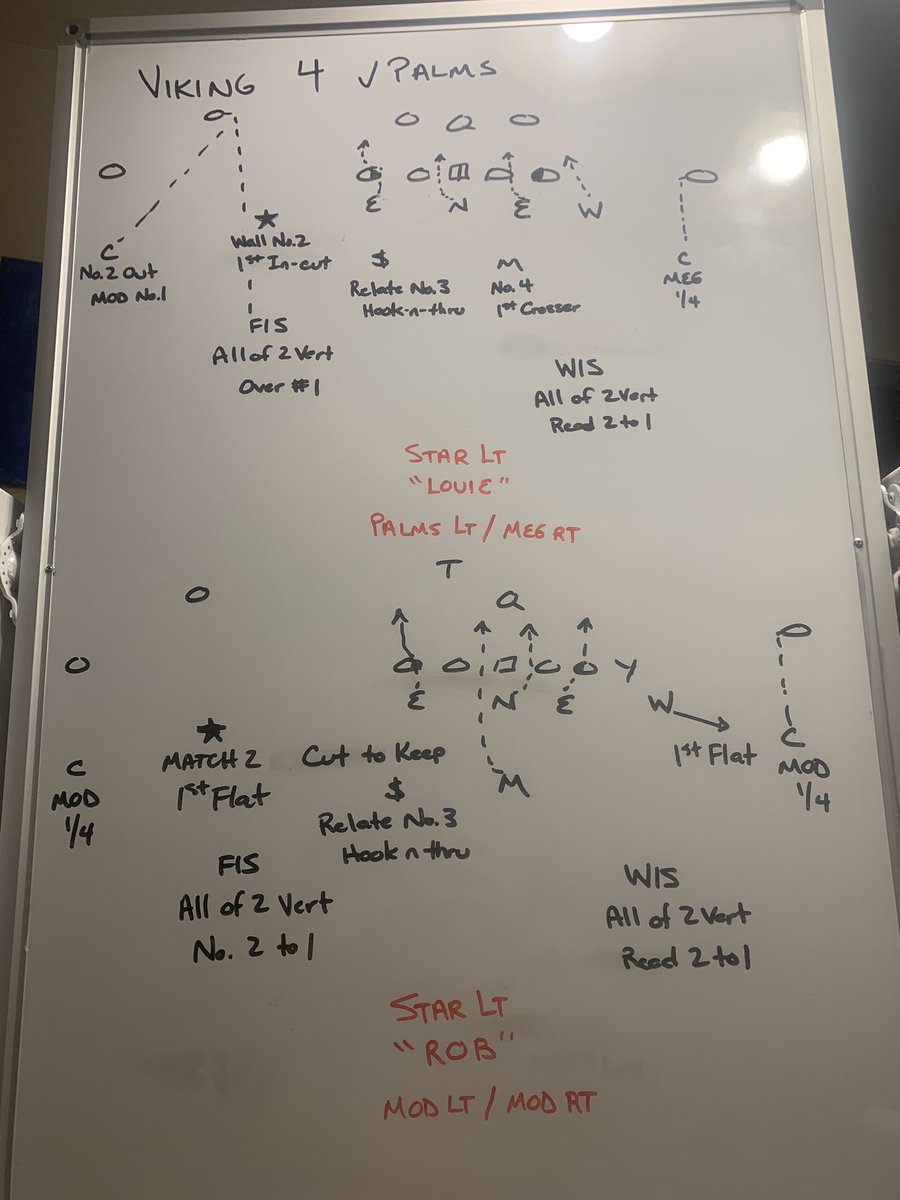 VIKING 4 √ PALMS
Q
E N E W
C
No.2 Out
MOD No.1
Wall No.2
1st In-cut
FIS
All of 2 Vert
Over #1
$
Relate No.3
Hook-n-thru
M
No.4
1st Crosser
C
MEG
1/4
WIS
All of 2 Vert
Read 2 to 1
STAR LT
"LOUIE"
PALMS LT / MEG RT
T
Q
Y
E N E W
C
MOD
1/4
MATCH 2
1st Flat
Cut to Keep
$
Relate No.3
Hook n thru
M
1st Flat
C
MOD
1/4
FIS
All of 2 Vert
No. 2 to 1
WIS
All of 2 Vert
Read 2 to 1
STAR LT
"ROB"
MOD LT / MOD RT